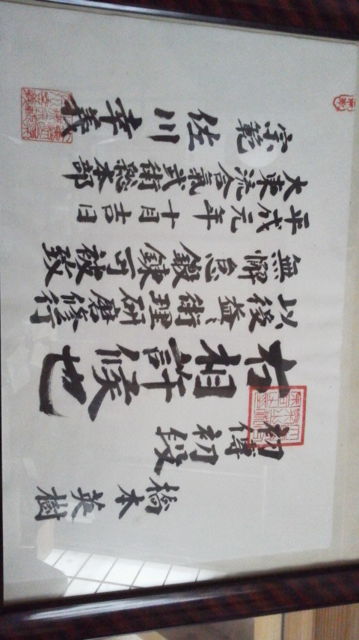 橋本英樹
初傳初段
右相許候也
以後益〻術理研磨修行
無懈怠鍛錬可被致
平成元年十月吉日
大東流合氣武術総本部
宗範 佐川幸義